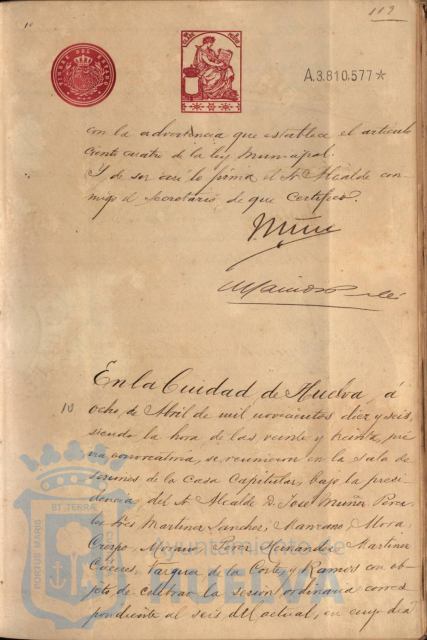 112
10
A.3.810.577*
con la advertencia que establece el artículo
ciento cuatro de la ley Municipal.
Y de ser así lo firma el Sr. Alcalde con-
migo el Secretario de que certifico.
En la Ciudad de Huelva, á
10
ocho de Abril de mil novecientos diez y seis
siendo la hora de las veinte y treinta, pré
via convocatoria, se reunieron en la Sala de
sesiones de la Casa Capitular, bajo la presi-
dencia del Sr. Alcalde D. José Muñiz
los Sres Martinez Sanchez, Manzano, Mora,
Crespo, Moreno, Perez Hernandez, Martinez
Caceres, Vazquez de la Corte y Ramos con ob
jeto de celebrar la sesión ordinaria corres
pondiente al seis del actual, en cuyo día
BT TERRÆ
PORTUS MARIS
Ayuntamiento de
HUELVA